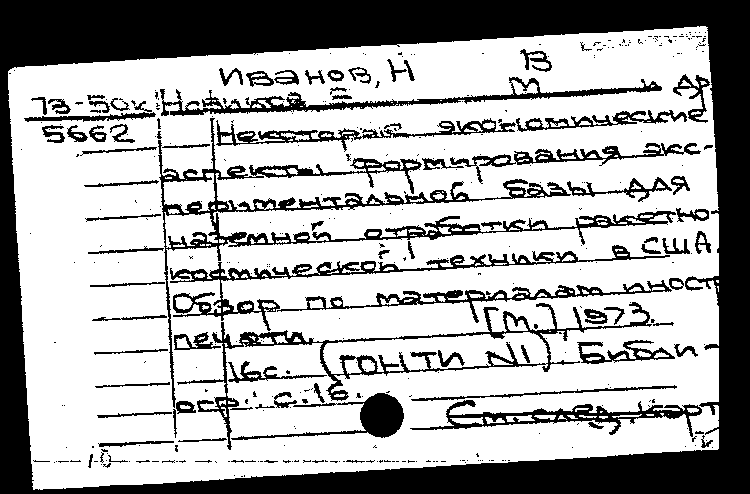 Иванов, Н
73-50к Новиков и др
5662 Некоторые экономические
аспекты формирования экс-
периментальной базы для
наземной отработки ракетно-
космической техники в США.
Обзор по материалам иностр
печати. [М.] 1973.
16с. (ГОНТИ №1). Библи-
огр.: с.16.
См. след. карт
10